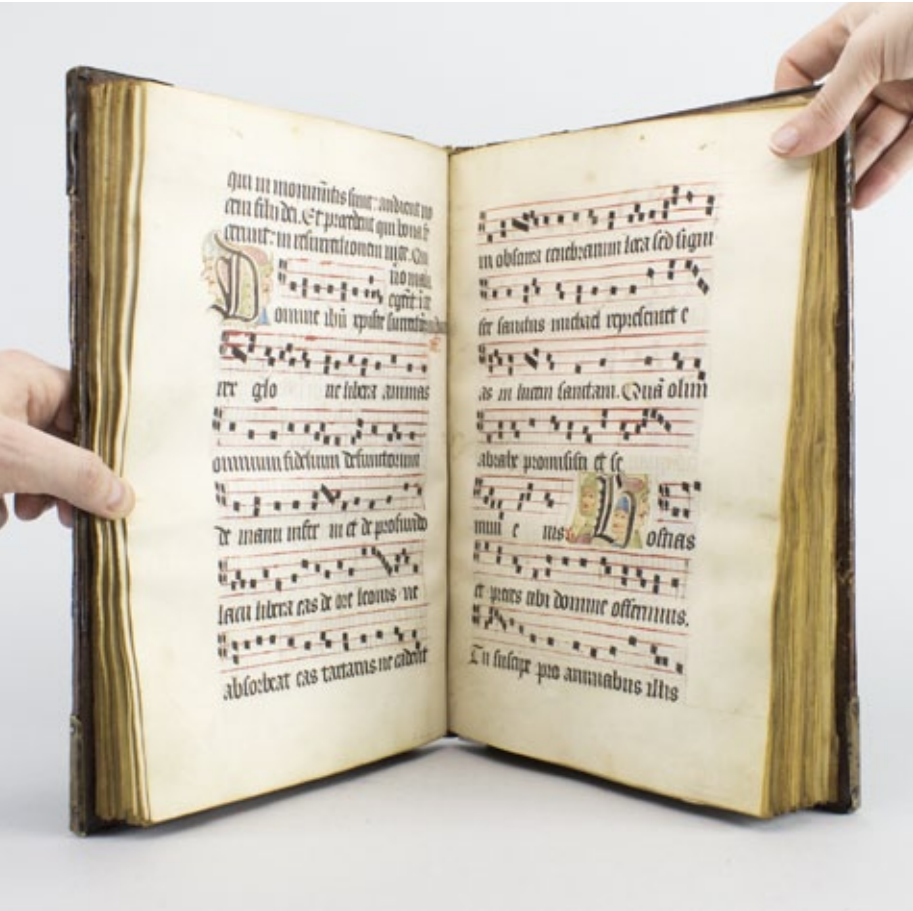 qui in monumẽtis sunt: audient vo
cem filii dei. Et procedent qui bona fe
cerunt: in resurrectionem vite. Qui
vo mala
egerũt: ĩ re
Domine ihũ xpiste
rex glo rie libera animas
omnium fidelium defunctorum
de manu infer ni et de profundo
lacu libera eas de ore leonis ne
absorbeat eas tartarus ne cadent
in obscura tenebrarum loca sed signi
fer sanctus michael representet e
as in lucem sanctam. Quã olim
abrahe promisisti et se
mini e ius Hostias
et preces tibi domine offerimus.
Tu suscipe pro animabus illis